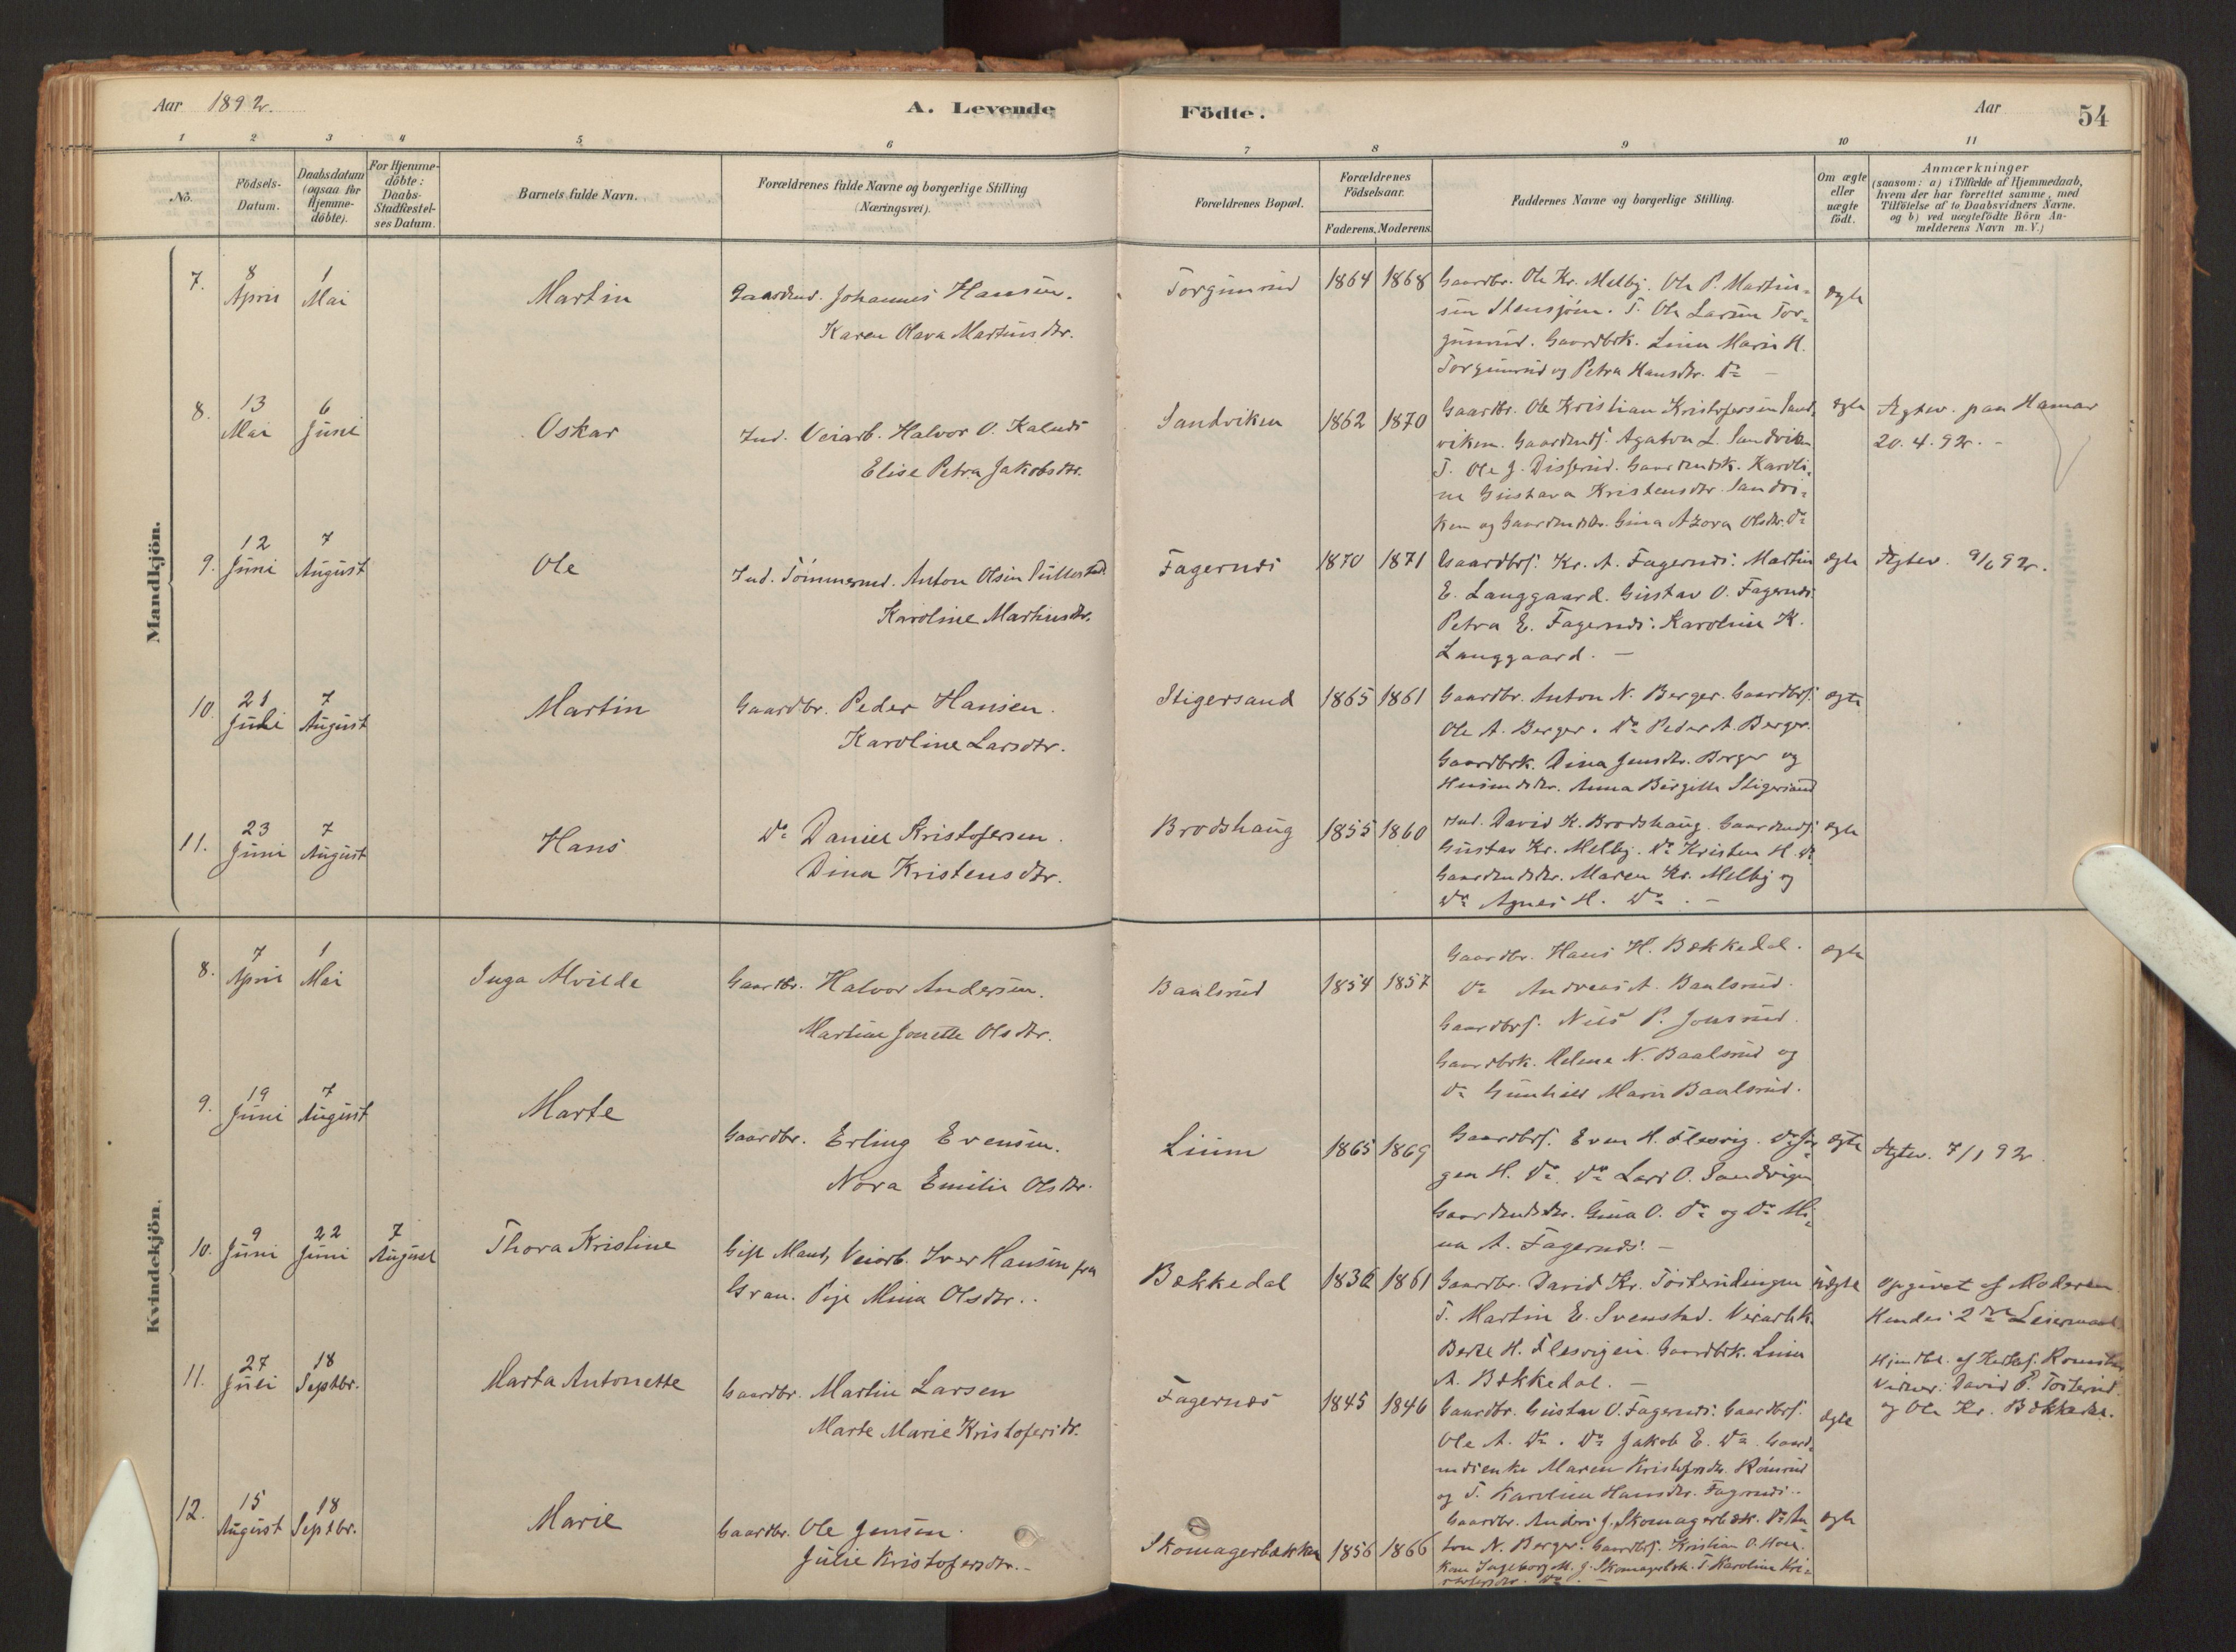 Aar 1892.
A. Levende Födte.
Aar
54
1 2 3 4 5 6 7 8 9 10 11
No.
Födsels-Datum.
Daabsdatum (ogsaa for Hjemme-döbte).
For Hjemme-döbte: Daabs-Stadfæstel-ses Datum.
Barnets fulde Navn.
Forældrenes fulde Navne og borgerlige Stilling (Næringsvei).
Forældrenes Bopæl.
Forældrenes Födselsaar.
Faderens. Moderens.
Faddernes Navne og borgerlige Stilling.
Om ægte eller uægte födt.
Anmærkninger (saasom: a) i Tilfælde af Hjemmedaab, hvem der har forrettet samme, med Tilföielse af to Daabsvidners Navne. og b) ved uægtefödte Börn An-melderens Navn m.V.)
Mandkjön.
7. 8 April 1 Mai Martin
Gaardmd. Johannes Hansen.
Karen Olava Martinsdtr.
Torgunrud 1864 1868
Gaardbr. Ole Kr. Melby. Ole P. Martin-
sen Stensjøen. T. Ole Larsen Tor-
gunrud. Gaardbrk. Lina Marie H.
Torgunrud og Petra Hansdtr. Do —
ægte
8. 13 Mai 6 Juni Oskar
Ind. Veiarb. Halvor O. Kalnes
Elise Petra Jakobsdtr.
Sandviken 1862 1870
Gaardbr. Ole Kristian Kristofersen Sand-
viken. Gaardmds. Agaton L. Sandviken
T. Ole J. Disserud. Gaardmdsk. Karoli-
ne Gustava Kristensdtr. Sandvi-
ken og Gaardmdsdtr. Gina Azora Olsdtr. Do
ægte
Ægtev. paa Hamar
20.4.92. -
9. 12 Juni 7 August Ole
Ind. Tömmermd. Anton Olsen Sullestad
Karoline Martinsdtr.
Fagernes 1870 1871
Gaardbrs. Kr. A. Fagernes. Martin
E. Langgaard. Gustav O. Fagernes.
Petra E. Fagernes. Karoline K.
Langgaard. —
ægte
Ægtev. 9/6 92.
10. 21 Juli 7 August Martin
Gaardbr. Peder Hansen.
Karoline Larsdtr.
Stigersand 1865 1861
Gaardbr. Anton N. Berger. Gaardbrs.
Ole A. Berger. Do Peder A. Berger.
Gaardbrk. Dina Jensdtr. Berger og
Husmdsdtr. Anna Birgitte Stigersand
ægte
11. 23 Juni 7 August Hans
Do Daniel Kristofersen.
Dina Kristensdtr.
Brodshaug 1855 1860
Ind. David K. Brodshaug. Gaardmds.
Gustav Kr. Melby. Do Kristen H. Do
Gaardmdsdtr. Maren Kr. Melby og
Do Agnes H. Do. -
ægte
Kvindekjön.
8. 7 April 1 Mai Inga Alvilde
Gaardbr. Halvor Andersen.
Martine Jonette Olsdtr.
Baalsrud 1854 1857
Gaardbr. Hans H. Bækkedal.
Do Andreas A. Baalsrud.
Gaardbrs. Nils P. Jonsrud.
Gaardbrk. Helene N. Baalsrud og
Do Gunhild Marie Baalsrud.
ægte
9. 19 Juni 7 August Marte
Gaardbr. Erling Evensen.
Nora Emilie Olsdtr.
Linn 1865 1869
Gaardbrs. Even H. Flesvig. Do Jør-
gen H. Do. Do Lars O. Sandvigen
Gaardmdsdtr. Gina O. Do og Do Mi-
na A. Fagernes. —
ægte
Ægtev. 7/1 92
10. 9 Juni 22 Juni 7 August Thora Kristine
Gift Mand, Veiarb. Iver Hansen fra
Gran. Pige Mina Olsdtr..
Bækkedal 1836 1861
Gaardbr. David Kr. Tösterudengen
T. Martin E. Svenstad. Veiarbk.
Berte H. Flesvigen. Gaardbrk. Lina
A. Bækkedal. —
uægte
Opgivet af Moderen.
Hendes 2det Leiermaal.
Hjemdbt. af
Vidner: David P. Tösterud.
og Ole Kr. Bækkedal.
11. 27 Juli 18 Septbr. Marta Antonette
Gaardbr. Martin Larsen
Marte Marie Kristofersdtr.
Fagernes 1845 1846
Gaardbr. Gustav O. Fagernes. Gaardbrs.
Ole A. Do. Do Jakob E. Do. Gaard-
mdsenke Maren Kristofersdtr. Römrud
og T. Karoline Hansdtr. Fagernes..
ægte
12. 15 August 18 Septbr. Marie
Gaardbr. Ole Jensen.
Julie Kristofersdtr.-
Skomagerbakken 1856 1866
Gaardbr. Anders J. Skomagerbak. Do An-
ton N. Berger. Gaardbrs. Kristian O.
Kone Ingeborg M. J. Skomagerbak. T. Karoline Kri-
stofersdtr. Do. —
ægte